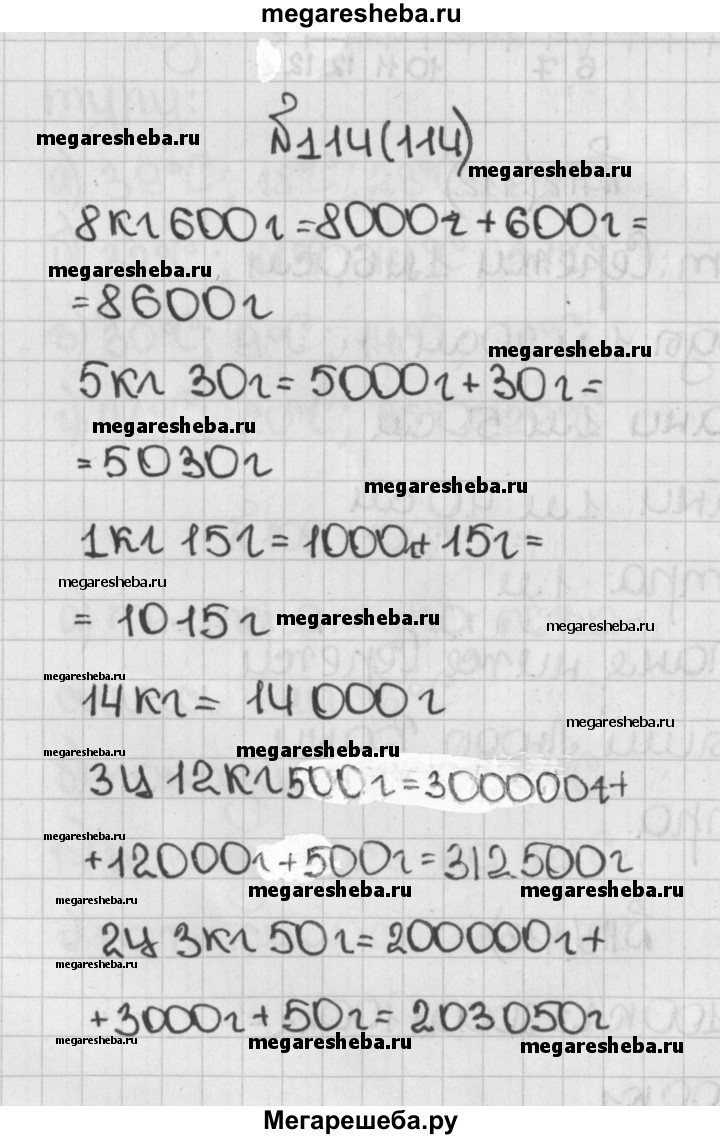 megaresheba.ru
megaresheba.ru
№114(114)
megaresheba.ru
8кг 600г=8000г+600г=
megaresheba.ru
=8600г
megaresheba.ru
5кг 30г=5000г+30г=
megaresheba.ru
=5030г
megaresheba.ru
1кг 15г=1000г+15г=
megaresheba.ru
= 1015г
megaresheba.ru
megaresheba.ru
megaresheba.ru
14кг= 14 000г
megaresheba.ru
megaresheba.ru
megaresheba.ru
3ц 12кг 500г=300000г+
megaresheba.ru
+12000г+500г=312500г
megaresheba.ru
megaresheba.ru
megaresheba.ru
2ц 3кг 50г=200000г+
megaresheba.ru
+3000г+50г=203050г
megaresheba.ru
megaresheba.ru
megaresheba.ru
Мегарешеба.ру